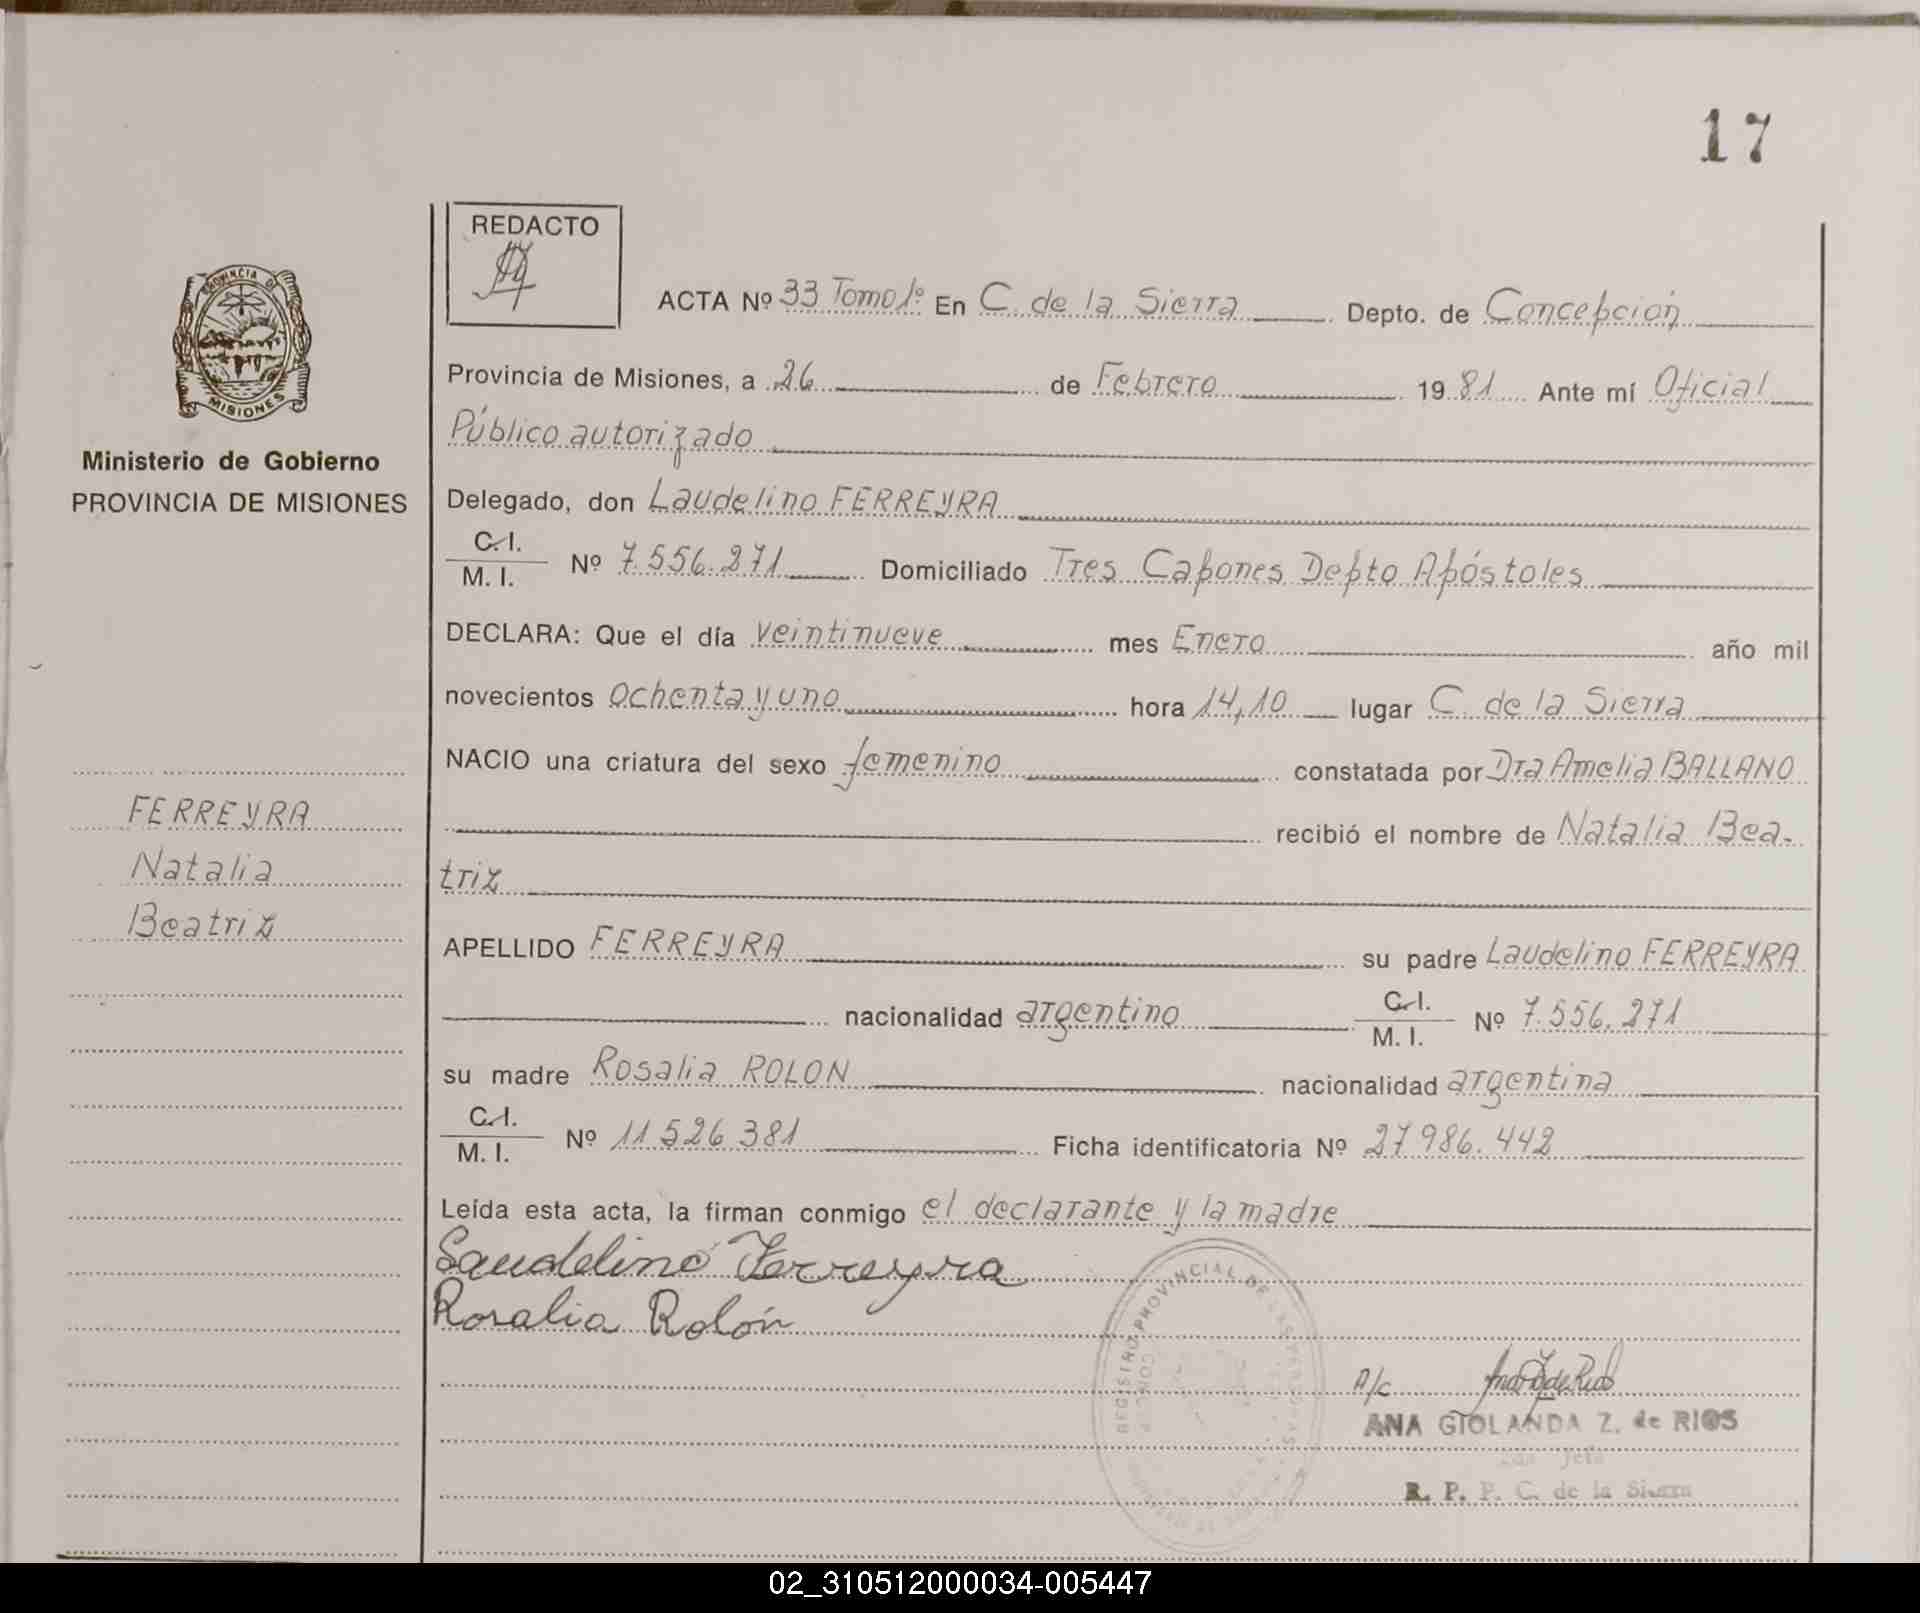 17
REDACTO
PROVINCIA DE
MISIONES
Ministerio de Gobierno
PROVINCIA DE MISIONES
FERREYRA
Natalia
Beatriz
ACTA Nº 33 Tomo 1º En C. de la Sierra Depto. de Concepción
Provincia de Misiones, a 26 de Febrero 1981 Ante mí Oficial
Público autorizado
Delegado, don Laudelino FERREYRA
C.I.
M. I. Nº 7.556.271 Domiciliado Tres Capones Depto Apóstoles
DECLARA: Que el día veintinueve mes Enero año mil
novecientos ochenta y uno hora 14,10 lugar C. de la Sierra
NACIO una criatura del sexo femenino constatada por Dra Amelia BALLANO
recibió el nombre de Natalia Bea-
triz
APELLIDO FERREYRA su padre Laudelino FERREYRA
nacionalidad argentino C.I.
M. I. Nº 7.556.271
su madre Rosalia ROLON nacionalidad argentina
C.I.
M. I. Nº 11.526.381 Ficha identificatoria Nº 27.986.442
Leída esta acta, la firman conmigo el declarante y la madre
Laudelino Ferreyra
Rosalia Rolón
REGISTRO PROVINCIAL DE LAS PERSONAS
A/c
ANA GIOLANDA Z. de RIOS
Jefe
R. P. P. C. de la Sierra
02_310512000034-005447